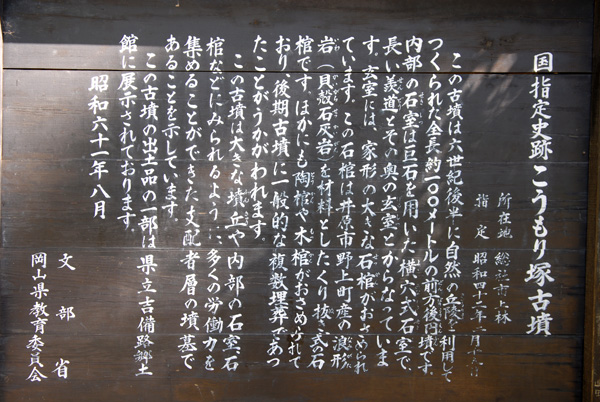 国指定史跡 こうもり塚古墳
所在地 総社市上林
指定 昭和四十三年二月十五日
この古墳は六世紀後半に自然の丘陵を利用して
つくられた全長約一〇〇メートルの前方後円墳です
内部の石室は巨石を用いた横穴式石室で、
長い羨道とその奥の玄室とからなっていま
す。玄室には、家形の大きな石棺がおさめられ
ています。この石棺は井原市野上町産の浪形
岩(貝殻石灰岩)を材料としたくり抜き式の石
棺です。ほかにも陶棺や木棺がおさめられて
おり、後期古墳に一般的な複数埋葬であっ
たことがうかがわれます。
この古墳は大きな墳丘や内部の石室、石
棺などにみられるように、多くの労働力を
集めることができた支配者層の墳墓で
あることを示しています。
この古墳の出土品の一部は県立吉備路郷土
館に展示されております。
昭和六十一年八月
文部省
岡山県教育委員会